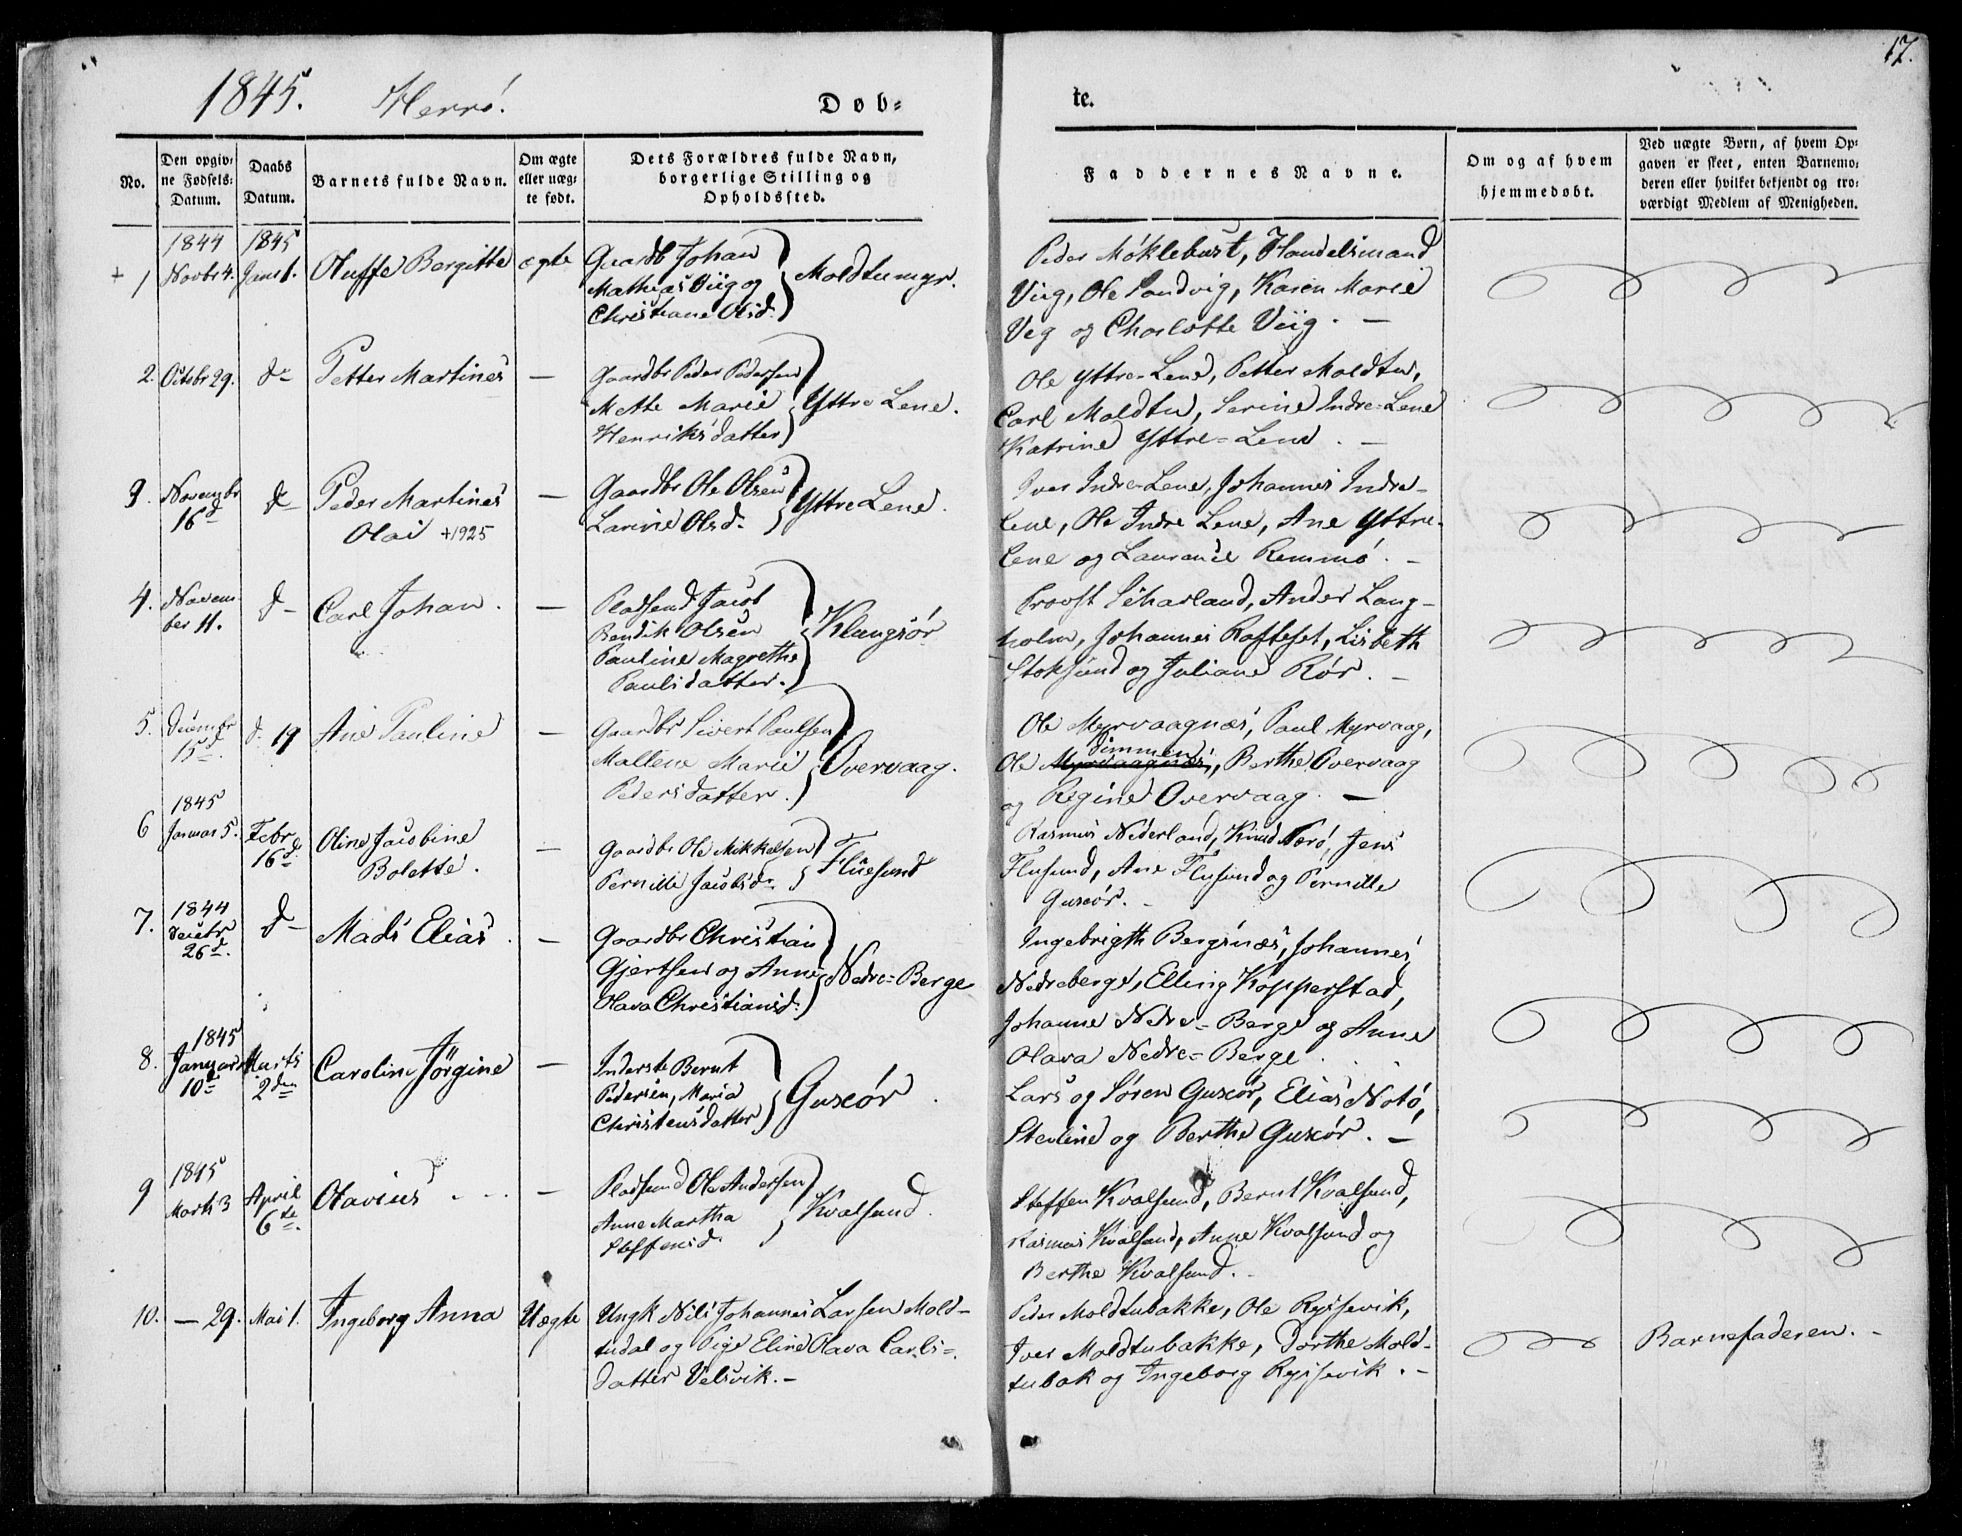 1845. Herrö. Døb=
te. 17.
No.
Den opgiv=
ne Fødsels=
Datum.
Daabs
Datum.
Barnets fulde Navn.
Om ægte
eller uæg=
te født.
Dets Forældres fulde Navn,
borgerlige Stilling og
Opholdssted.
Faddernes Navne.
Om og af hvem
hjemmedøbt.
Ved uægte Børn, af hvem Op=
gaven er skeet, enten Barnemo=
deren eller hvilket bekjendt og tro=
værdigt Medlem af Menigheden.
1844 1845
+ 1 Novbr 4. Janr 1. Oluffe Bergitte ægte Gaardb Johan
Mathias Viig og
Christiane Olsd.
Moldtumyr.
Peder Möklebust, Handelsmand
Viig, Ole Sandvig, Karen Marie
Veg og Charlotte Viig. —
2. Octobr 29. do Petter Martines — Gaardbr Peder Pedersen
Mette Marie
Henriksdatter
Yttre Lene.
Ole Yttre-Lene, Petter Moldtu,
Carl Moldtu, Serine Indre-Lene
Katrine Yttre=Lene. —
3. Novembr
16d
do Peder Martines
Olai +1925
— Gaardbr Ole Olsen
Larine Olsd.
Yttre Lene.
Iver Indre-Lene, Johannes Indre-
Lene, Ole Indre Lene, Ane Yttre-
Lene og Laurence Remmö. -
4. Novem
ber 11.
d— Carl Johan. — Pladsmd Jacob
Bendik Olsen
Pauline Magrethe
Paulsdatter.
Klungsör
Provst Scharland, Ander Lang-
holm, Johannes Rafteset, Lisbeth
Stoksund og Juliane Rör. -
5. Decembr
15d
d. 19 Ane Pauline — Gaardbr Sivert Paulsen
Mallene Marie
Pedersdatter.
Overvaag.
Ole Myrvaagnæs, Paul Myrvaag,
Dimmen
Ole Myrvaagnæs, Berthe Overvaag
og Regine Overvaag. —
1845
6 Januar 5. Febr
16d
Oline Jacobine
Bolette.
— Gaardbr Ole Mikkelsen
Pernille Jacobsd.
Fluesund
Rasmus Nederland, Knud Nærö, Jens
Flusund, Ane Flusund og Pernille
Guscör. -
1844
7. Decbr
26d.
d— Mads Elias. — Gaardbr Christian
Gjertsen og Anne
Olava Christiansd.
Nedre=Berge
Ingebrigth Bergsnæs, Johannes
Nedreberge, Elling Kopperstad,
Johanne Nedre=Berge og Anne
Olava Nedre=Berge
1845
8. Januar
10d
Marts
2den
Caroline Jörgine — Inderste Bernt
Pedersen, Maria
Christensdatter
Guscör.
Lars og Sören Guscör, Elias Notö,
Stevline og Berthe Guscör. —
1845
9 Marts 3 April
6te.
Olavius — Pladsmd Ole Andersen
Anne Martha
Steffensd.
Kvalsund.
Steffen Kvalsund, Bernt Kvalsund,
Rasmus Kvalsund, Anne Kvalsund og
Berthe Kvalsund. -
10. — 29. Mai 1. Ingeborg Anna Uægte Ungk Nils Johannes Larsen Mold-
tudal og Pige Eline Olava Carls=
datter Velsvik. -
Peder Moldtubakke, Ole Rysjevik,
Iver Moldtubakke, Dorthe Mold-
tubak og Ingeborg Rysjevik. -
Barnefaderen. -